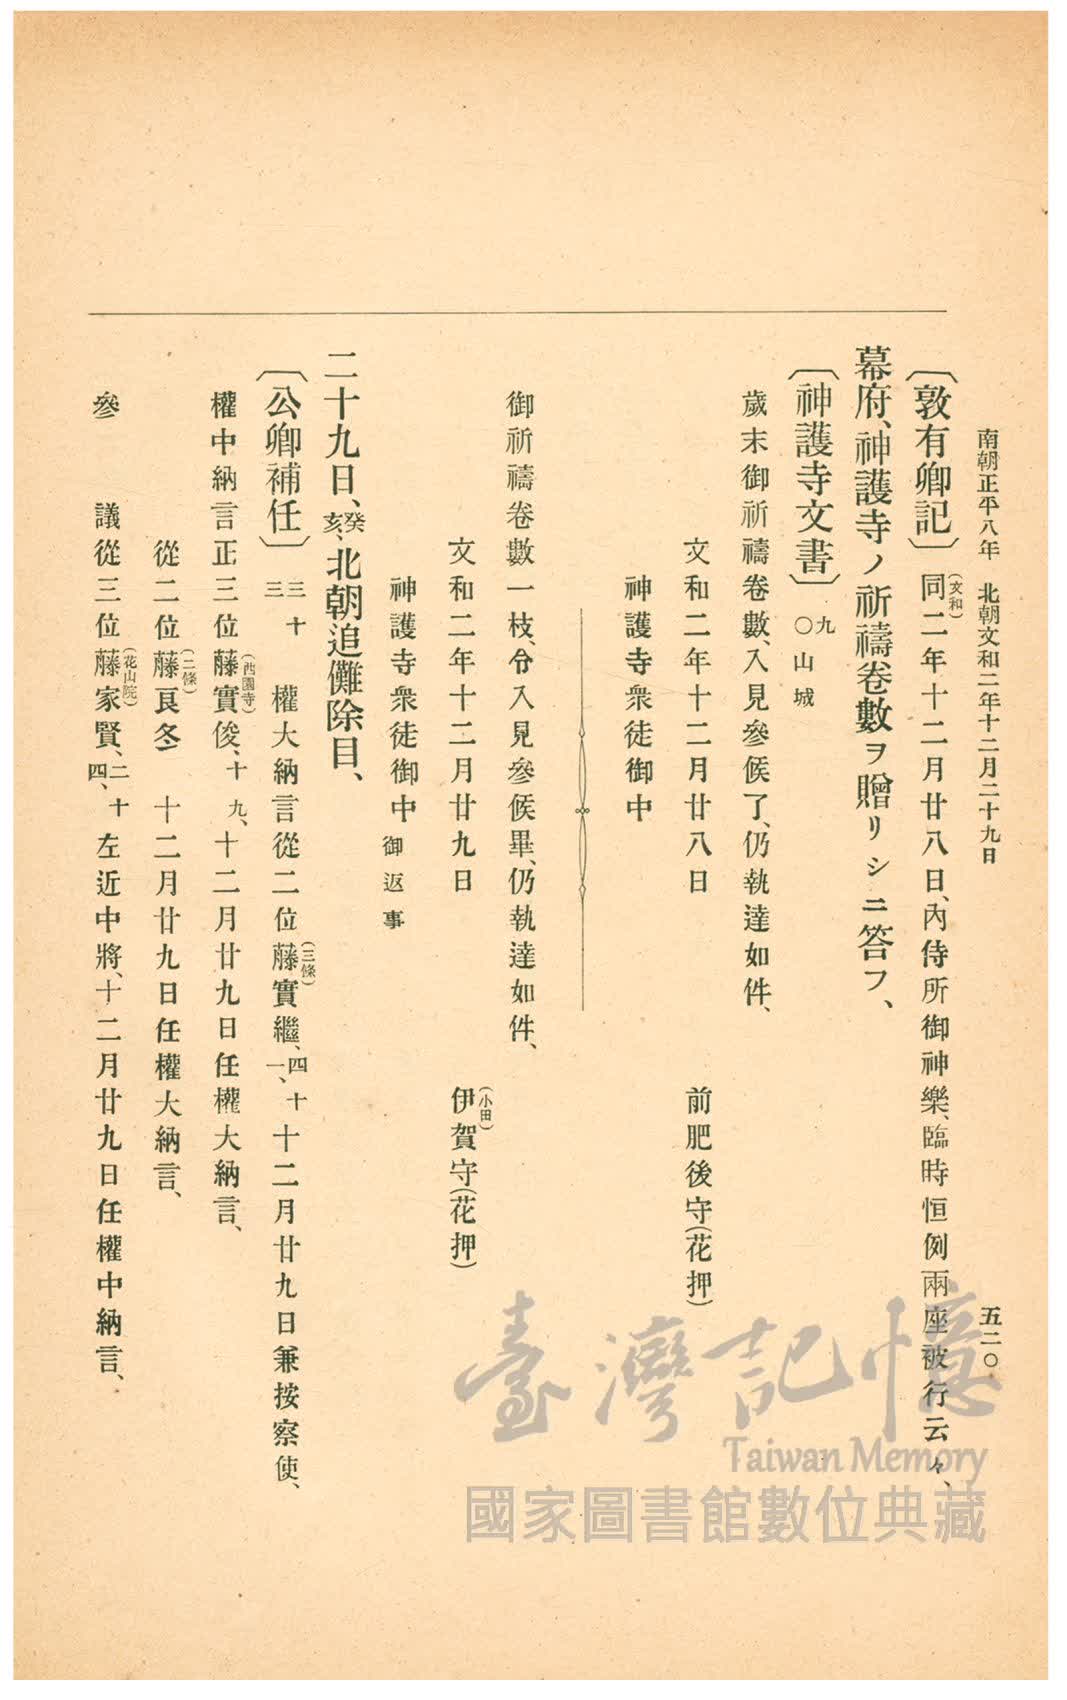 南朝正平八年 北朝文和二年十二月二十九日 五二〇
〔敦有卿記〕同(文和)二年十二月廿八日、內侍所御神樂、臨時恒例兩座被行云々、
幕府、神護寺ノ祈禱卷數ヲ贈リシニ答フ、
〔神護寺文書〕九〇山城
歲末御祈禱卷數、入見參候了、仍執達如件、
文和二年十二月廿八日 前肥後守(花押)
神護寺衆徒御中
御祈禱卷數一枝、令入見參候畢、仍執達如件、
文和二年十二月廿九日 伊賀守(小田)(花押)
神護寺衆徒御中 御返事
二十九日、癸亥、北朝追儺除目、
〔公卿補任〕三十三 權大納言從二位藤實繼(三條)、四十一、十二月廿九日兼按察使、
權中納言正三位藤實俊(西園寺)、十九、十二月廿九日任權大納言、
從二位藤良冬(二條) 十二月廿九日任權大納言、
參議從三位藤家賢(花山院)、二十四、左近中將、十二月廿九日任權中納言、
臺灣記憶
Taiwan Memory
國家圖書館數位典藏